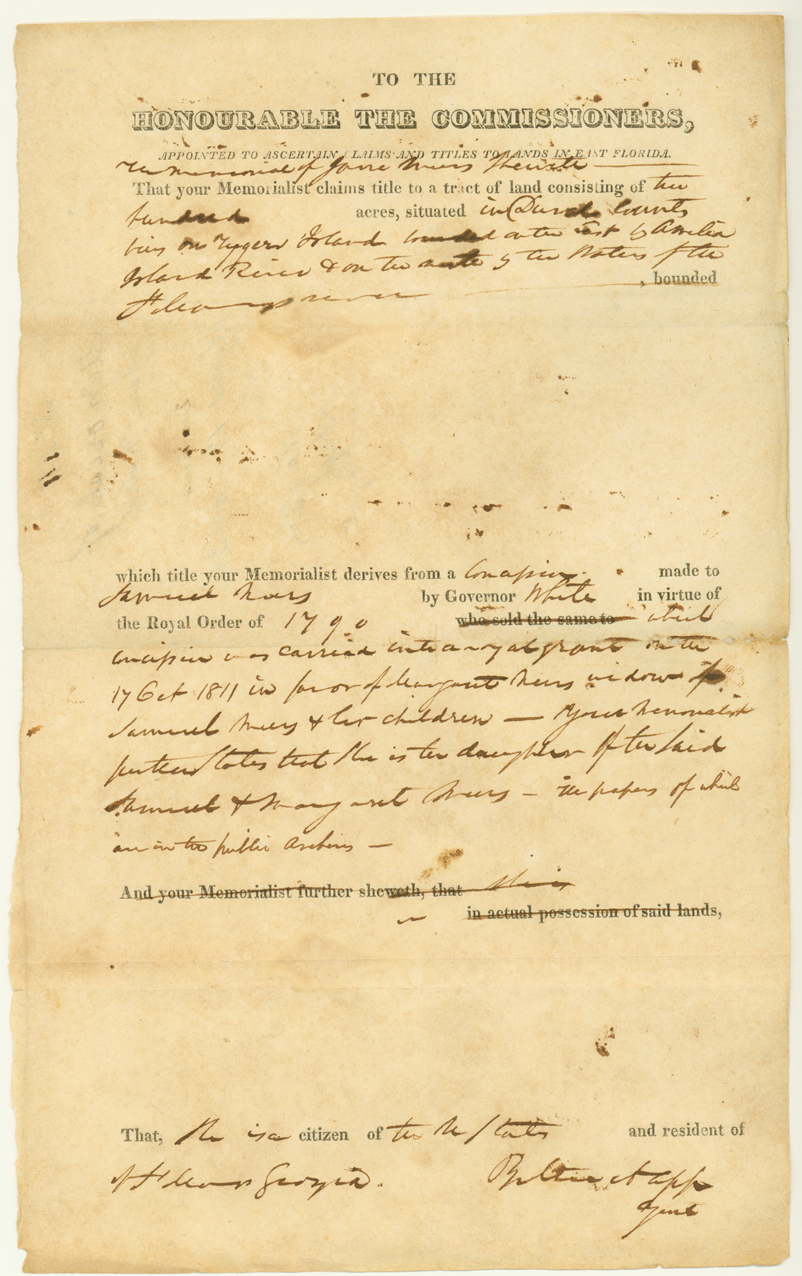 TO THE
HONOURABLE THE COMMISSIONERS,
APPOINTED TO ASCERTAIN CLAIMS AND TITLES TO LANDS IN EAST FLORIDA.
The Memorial of Jane Sheweth
That your Memorialist claims title to a tract of land consisting of two
hundred acres, situated in Duval County
on Tygers Island bounded on the East by Amelia
Island River & on the by the Waters of the
St river , bounded
which title your Memorialist derives from a made to
Samuel by Governor White in virtue of
the Royal Order of 1790 who sold the same to which
was carried into a royal grant on the
17 Oct 1811 in favor of Margaret widow of
Samuel & her children — Your Memorialist
further States that She is the daughter of the Said
Samuel & Margaret — the papers of which
are in the public Archives —
And your Memorialist further sheweth, that
in actual possession of said lands,
That, She is a citizen of the U States and resident of
of St Georgia.